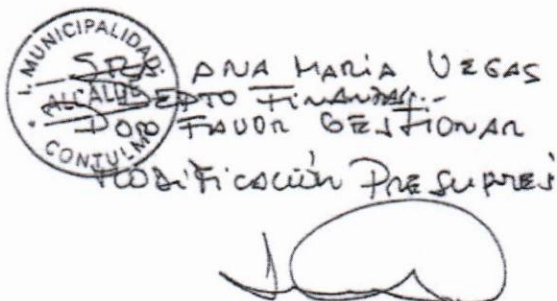 I. MUNICIPALIDAD
ALCALDE
CONTULMO
SRA. ANA MARIA VEGAS
DEPTO FINANZAS.-
POR FAVOR GESTIONAR
MODIFICACIÓN PRESUPUES